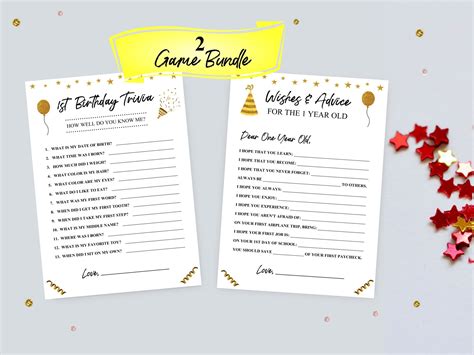 2
Game Bundle
1st Birthday Trivia
HOW WELL DO YOU KNOW ME?
1. WHAT IS MY DATE OF BIRTH?
2. WHAT TIME WAS I BORN?
3. HOW MUCH DID I WEIGH?
4. WHAT COLOR IS MY HAIR?
5. WHAT COLOR IS MY EYES?
6. WHAT DO I LIKE TO EAT?
7. WHAT WAS I BORN?
8. WHEN DID I GET MY FIRST TOOTH?
9. WHEN DID I TAKE MY FIRST STEP?
10. WHAT IS MY MIDDLE NAME?
11. WHERE WAS I BORN?
12. WHAT IS MY FAVORITE TOY?
13. WHEN DID I SIT ON MY OWN?
Love,
Wishes & Advice
FOR THE 1 YEAR OLD
Dear One Year Old,
I HOPE THAT YOU LEARN:
I HOPE THAT YOU NEVER FORGET:
ALWAYS BE TO OTHERS.
ALWAYS:
I HOPE THAT YOU ENJOY:
I HOPE YOU EXPERIENCE:
I HOPE YOU AREN'T AFRAID OF:
ON YOUR FIRST AIRPLANE TRIP, BRING:
I HOPE YOUR FIRST JOB IS:
ON YOUR 1ST DAY OF SCHOOL:
YOU SHOULD SAVE OF YOUR FIRST PAYCHECK.
Love,